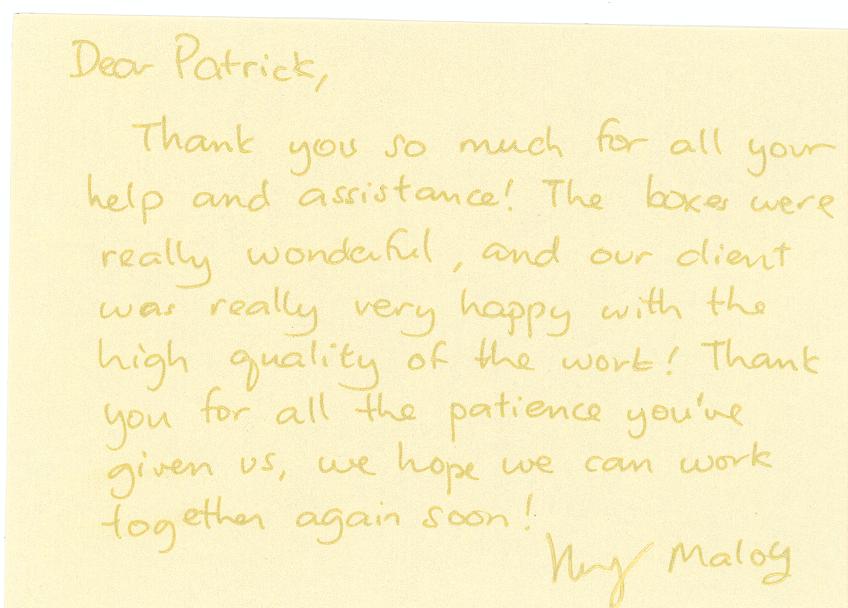 Dear Patrick,
Thank you so much for all your
help and assistance! The boxes were
really wonderful, and our client
was really very happy with the
high quality of the work! Thank
you for all the patience you've
given us, we hope we can work
together again soon!
Maloy